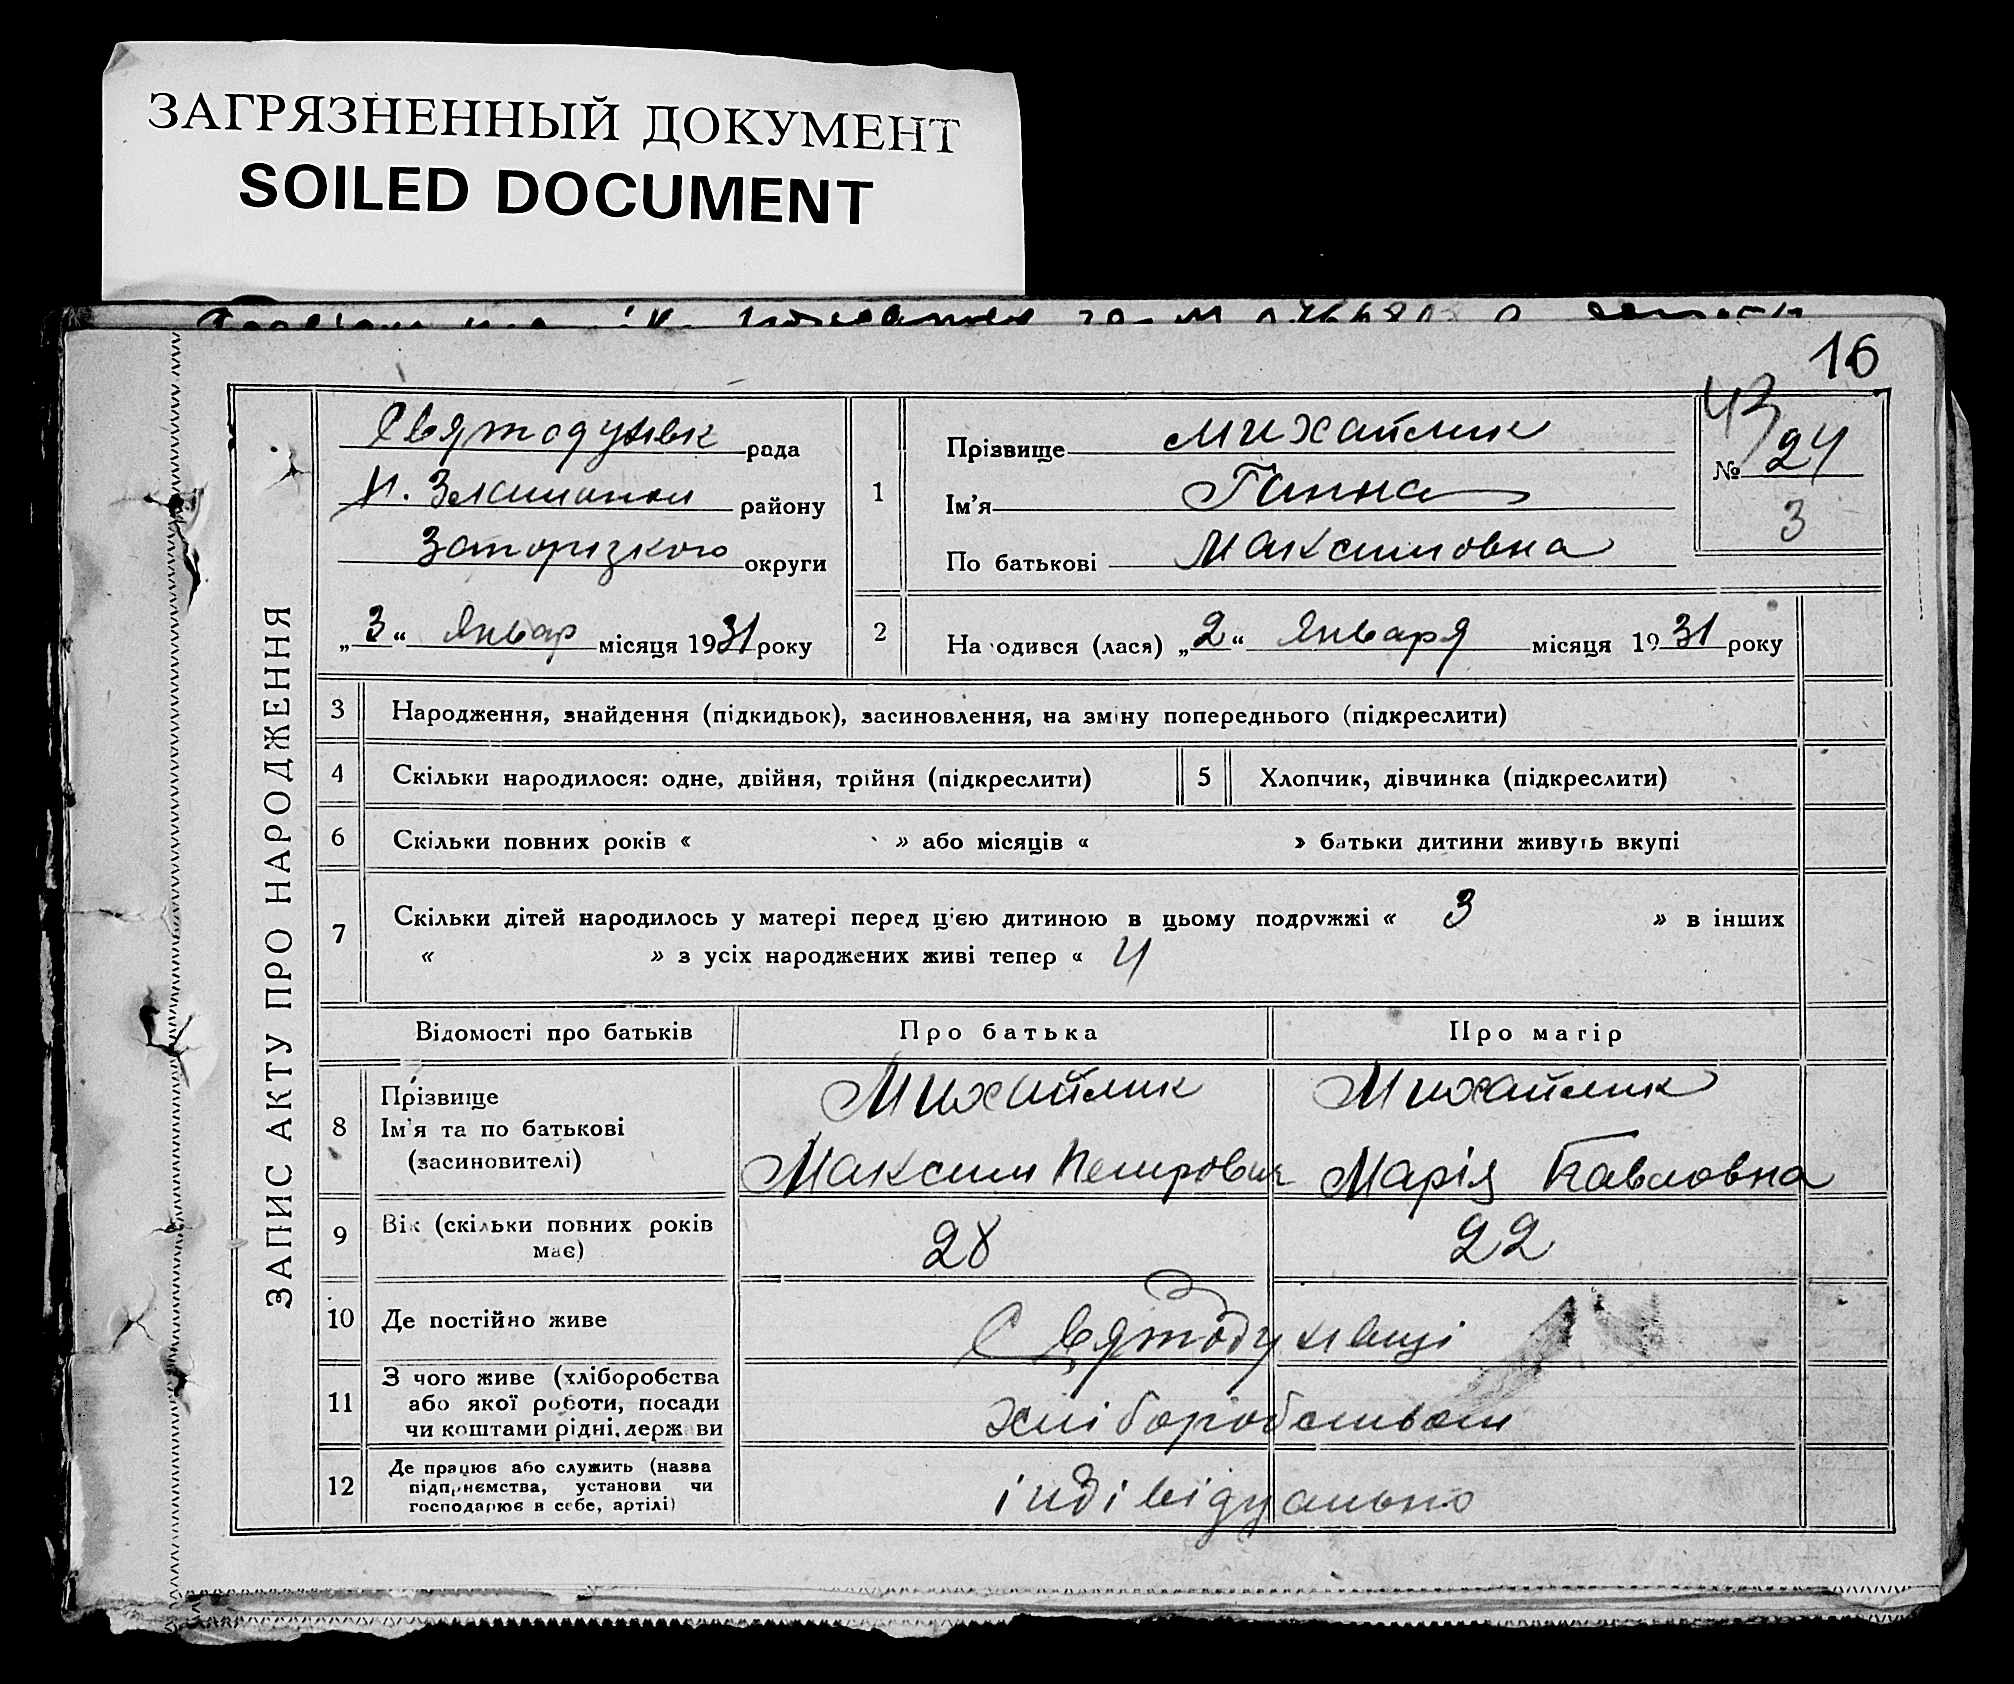 ЗАГРЯЗНЕННЫЙ ДОКУМЕНТ
SOILED DOCUMENT
16
ЗАПИС АКТУ ПРО НАРОДЖЕННЯ
Святодухівк рада
району
Запорізкого округи
„3“ Январ місяця 1931 року
1
Прізвище Михайлик
Ім'я Ганна
По батькові Максимовна
43
№ 24
3
2
Народився (лася) „2“ Января місяця 1931 року
3 Народження, знайдення (підкидьок), засиновлення, на зміну попереднього (підкреслити)
4 Скільки народилося: одне, двійня, трійня (підкреслити)
5 Хлопчик, дівчинка (підкреслити)
6 Скільки повних років « » або місяців « » батьки дитини живуть вкупі
7 Скільки дітей народилось у матері перед ц'єю дитиною в цьому подружжі « 3 » в інших
« » з усіх народжених живі тепер « 4
Відомості про батьків Про батька Про матір
8 Прізвище
Ім'я та по батькові
(засиновителі)
Михайлик
Максим Петрович
Михайлик
Марія Павловна
9 Вік (скільки повних років
має)
28 22
10 Де постійно живе Святодухівці
11 З чого живе (хліборобства
або якої роботи, посади
чи коштами рідні, держави
хліборобством
12 Де працює або служить (назва
підприємства, установи чи
господарює в себе, артілі)
індівідуально